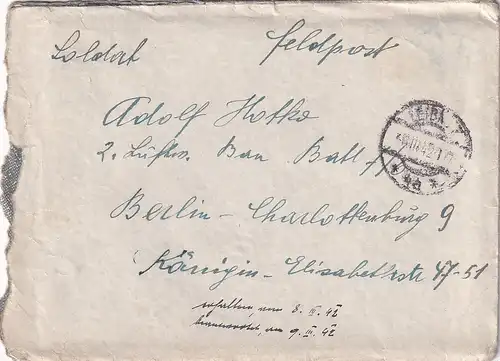 Soldat Feldpost
Adolf Hotko
2. Luftw. Bau Batl
Berlin - Charlottenburg 9
Königin-Elisabethstr 47-51
erhalten am 8. III. 42
beantwortet, am 9. III. 42